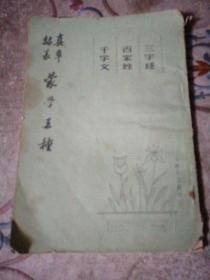 三字經
百家姓
千字文
真草
隸篆
蒙学三種